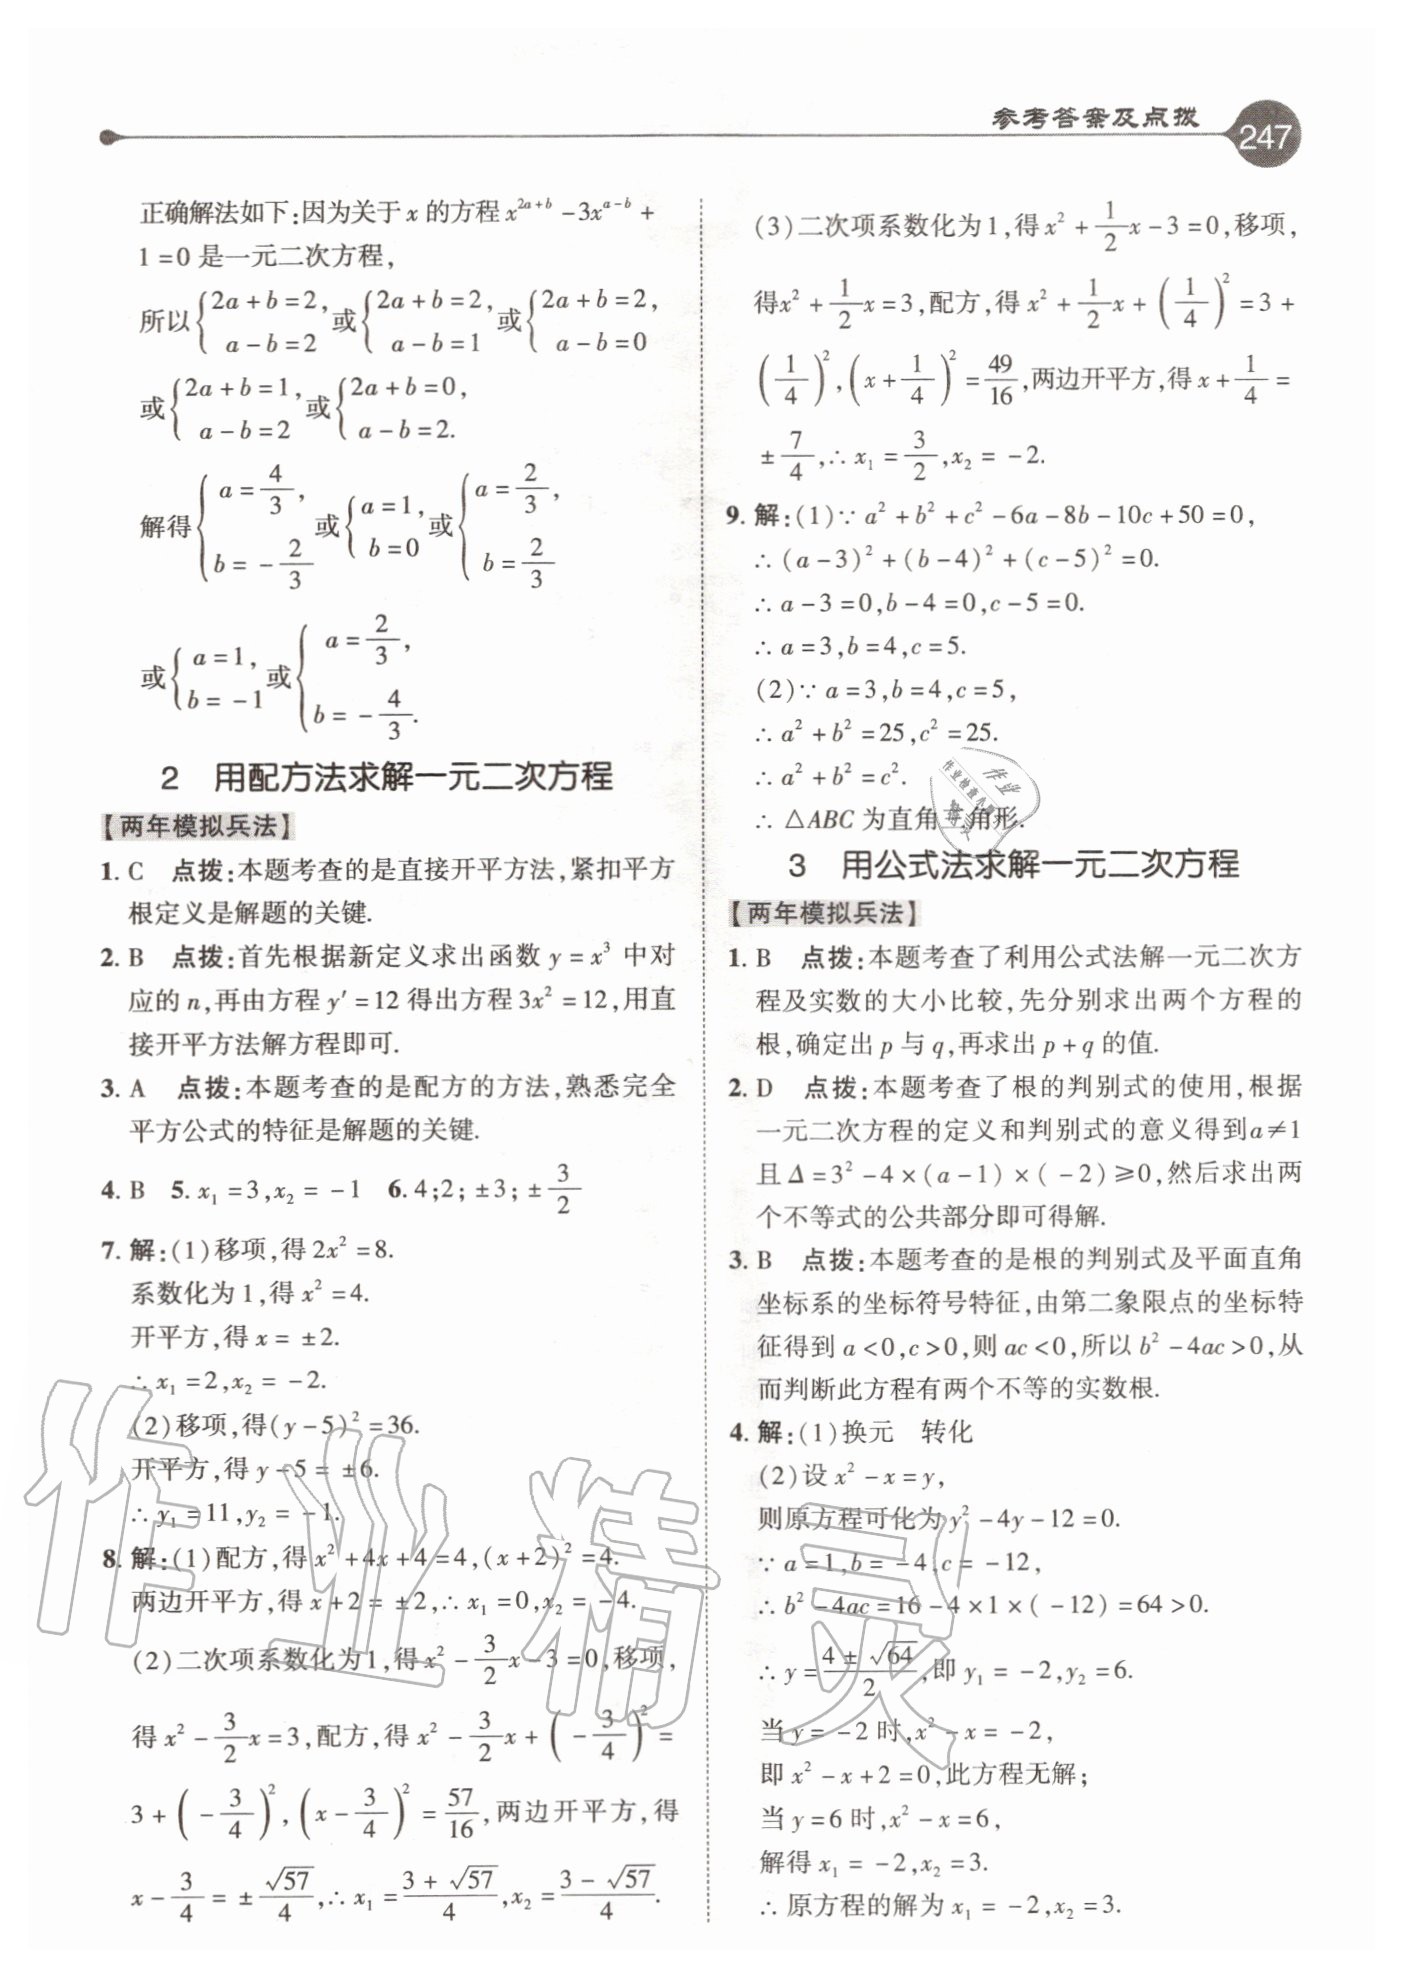 参考答案及点拨
247
正确解法如下:因为关于 x 的方程 x^{2a+b} -3x^{a-b} +
1=0 是一元二次方程,
所以{2a+b=2, a-b=2 或{2a+b=2, a-b=1 或{2a+b=2, a-b=0
或{2a+b=1, a-b=2 或{2a+b=0, a-b=2.
解得{a=4/3, b=-2/3 或{a=1, b=0 或{a=2/3, b=2/3
或{a=1, b=-1 或{a=2/3, b=-4/3.
2 用配方法求解一元二次方程
【两年模拟兵法】
1. C 点拨:本题考查的是直接开平方法,紧扣平方
根定义是解题的关键.
2. B 点拨:首先根据新定义求出函数 y=x³ 中对
应的 n,再由方程 y′=12 得出方程 3x²=12,用直
接开平方法解方程即可.
3. A 点拨:本题考查的是配方的方法,熟悉完全
平方公式的特征是解题的关键.
4. B 5. x₁=3,x₂=-1 6. 4;2;±3;±3/2
7. 解:(1)移项,得 2x²=8.
系数化为 1,得 x²=4.
开平方,得 x=±2.
∴ x₁=2,x₂=-2.
(2)移项,得(y-5)²=36.
开平方,得 y-5=±6.
∴ y₁=11,y₂=-1.
8. 解:(1)配方,得 x²+4x+4=4,(x+2)²=4.
两边开平方,得 x+2=±2,∴ x₁=0,x₂=-4.
(2)二次项系数化为1,得 x²-3/2x-3=0,移项,
得 x²-3/2x=3,配方,得 x²-3/2x+(-3/4)²=
3+(-3/4)²,(x-3/4)²=57/16,两边开平方,得
x-3/4=±√57/4,∴ x₁=(3+√57)/4,x₂=(3-√57)/4.
(3)二次项系数化为 1,得 x²+1/2x-3=0,移项,
得x²+1/2x=3,配方,得 x²+1/2x+(1/4)²=3+
(1/4)²,(x+1/4)²=49/16,两边开平方,得 x+1/4=
±7/4,∴ x₁=3/2,x₂=-2.
9. 解:(1)∵ a²+b²+c²-6a-8b-10c+50=0,
∴ (a-3)²+(b-4)²+(c-5)²=0.
∴ a-3=0,b-4=0,c-5=0.
∴ a=3,b=4,c=5.
(2)∵ a=3,b=4,c=5,
∴ a²+b²=25,c²=25.
∴ a²+b²=c².
∴ △ABC 为直角三角形.
3 用公式法求解一元二次方程
【两年模拟兵法】
1. B 点拨:本题考查了利用公式法解一元二次方
程及实数的大小比较,先分别求出两个方程的
根,确定出 p 与 q,再求出 p+q 的值.
2. D 点拨:本题考查了根的判别式的使用,根据
一元二次方程的定义和判别式的意义得到a≠1
且 Δ=3²-4×(a-1)×(-2)≥0,然后求出两
个不等式的公共部分即可得解.
3. B 点拨:本题考查的是根的判别式及平面直角
坐标系的坐标符号特征,由第二象限点的坐标特
征得到 a<0,c>0,则 ac<0,所以 b²-4ac>0,从
而判断此方程有两个不等的实数根.
4. 解:(1)换元 转化
(2)设 x²-x=y,
则原方程可化为 y²-4y-12=0.
∵ a=1,b=-4,c=-12,
∴ b²-4ac=16-4×1×(-12)=64>0.
∴ y=(4±√64)/2,即 y₁=-2,y₂=6.
当 y=-2 时,x²-x=-2,
即 x²-x+2=0,此方程无解;
当 y=6 时,x²-x=6,
解得 x₁=-2,x₂=3.
∴ 原方程的解为 x₁=-2,x₂=3.
作业精灵